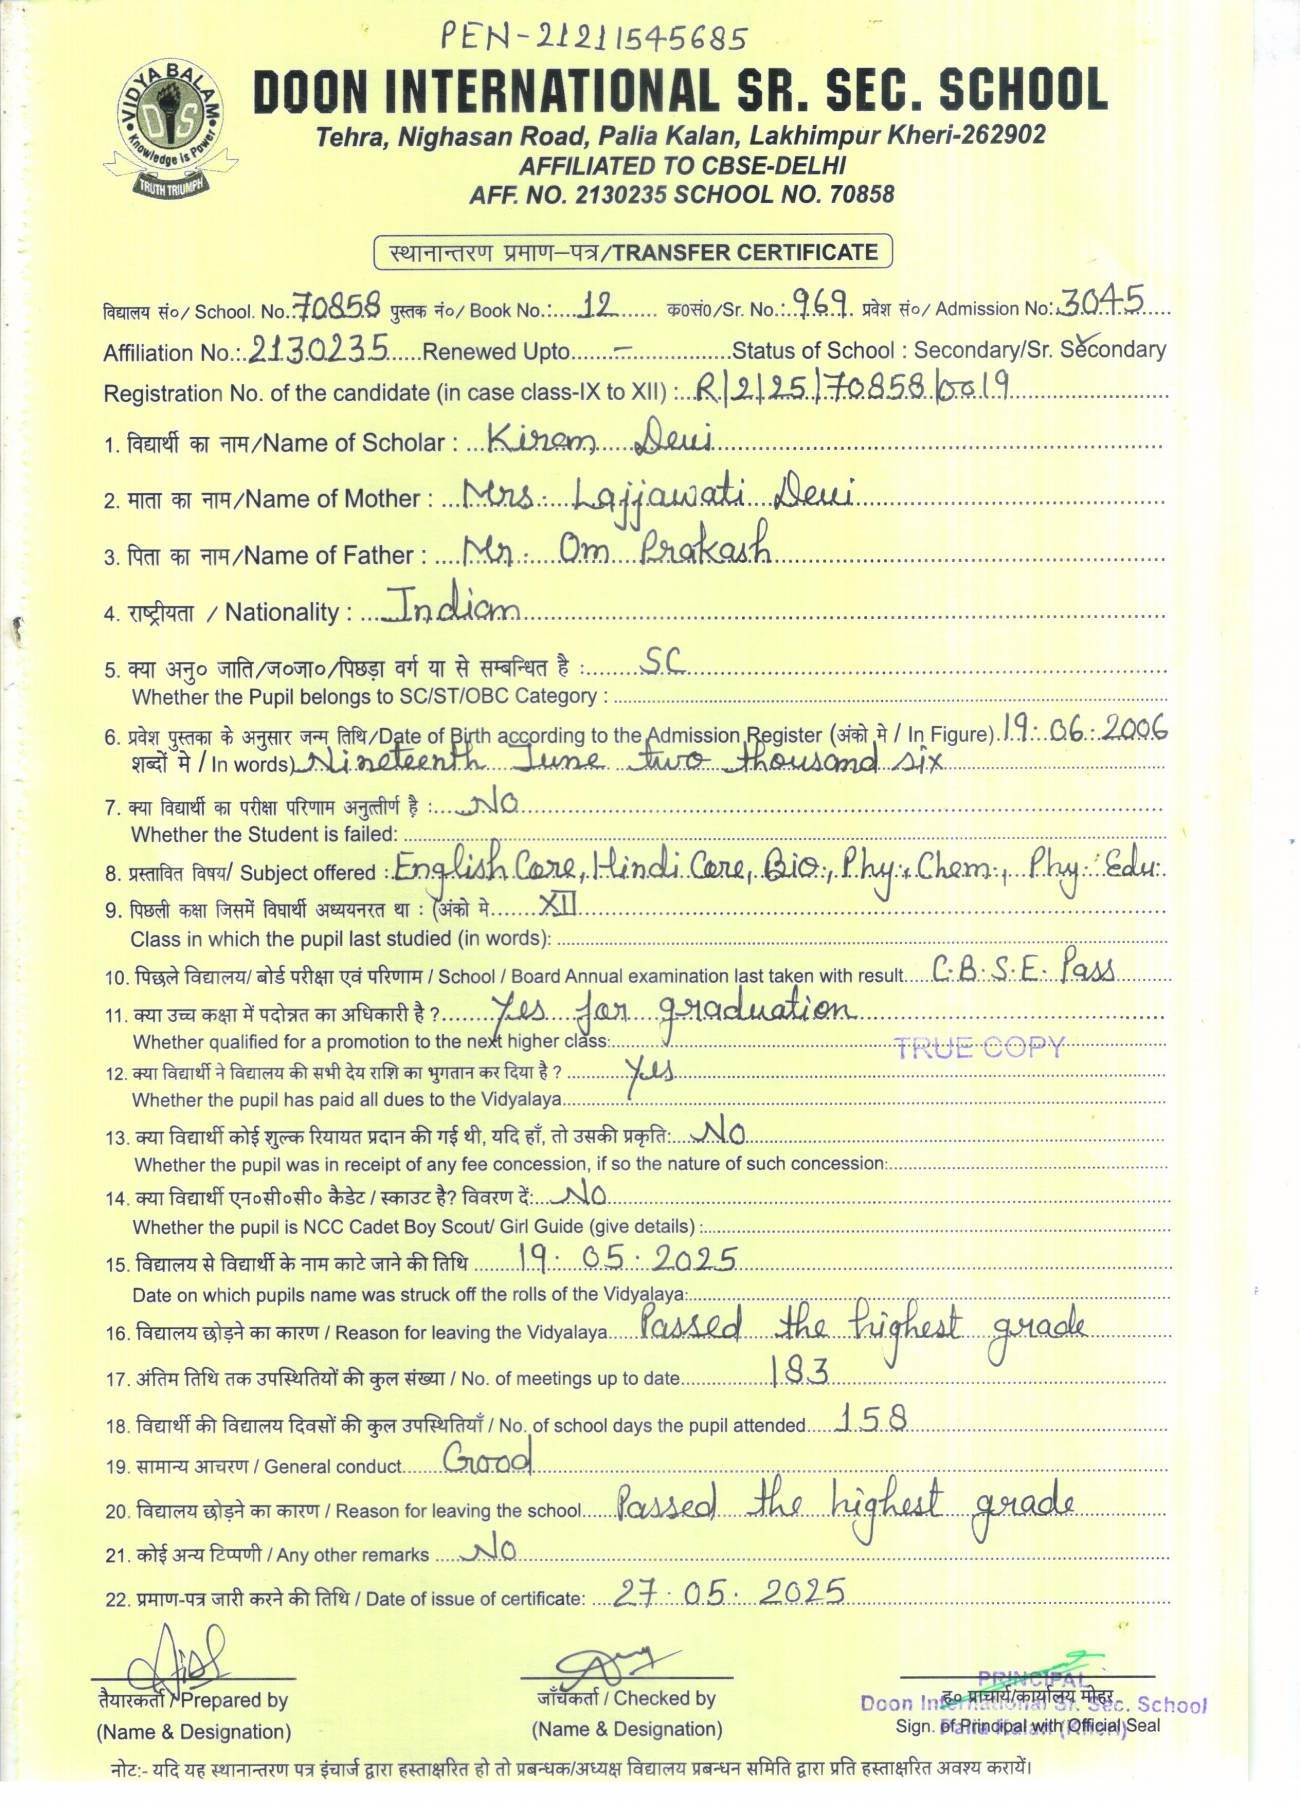 PEN-21211545685
VIDYA BALAM
DIS
Knowledge is Power
TRUTH TRIUMPH
DOON INTERNATIONAL SR. SEC. SCHOOL
Tehra, Nighasan Road, Palia Kalan, Lakhimpur Kheri-262902
AFFILIATED TO CBSE-DELHI
AFF. NO. 2130235 SCHOOL NO. 70858
स्थानान्तरण प्रमाण–पत्र/TRANSFER CERTIFICATE
विद्यालय सं०/ School. No.:70858 पुस्तक नं०/ Book No.:....12...... क0सं0/Sr. No.:969. प्रवेश सं०/ Admission No:.3045.....
Affiliation No.:.2130235......Renewed Upto.......–.................Status of School : Secondary/Sr. Secondary
Registration No. of the candidate (in case class-IX to XII) :..R/2/25/70858/0019
1. विद्यार्थी का नाम/Name of Scholar : ...Kiran Devi
2. माता का नाम/Name of Mother : ...Mrs. Lajjawati Devi
3. पिता का नाम/Name of Father : ...Mr. Om Prakash
4. राष्ट्रीयता / Nationality : ...Indian
5. क्या अनु० जाति/ज०जा०/पिछड़ा वर्ग या से सम्बन्धित है :.......SC
Whether the Pupil belongs to SC/ST/OBC Category :
6. प्रवेश पुस्तका के अनुसार जन्म तिथि/Date of Birth according to the Admission Register (अंको मे / In Figure).19.06.2006
शब्दों मे / In words) Nineteenth June two thousand six
7. क्या विद्यार्थी का परीक्षा परिणाम अनुत्तीर्ण है :....No
Whether the Student is failed:
8. प्रस्तावित विषय/ Subject offered : English Core, Hindi Core, Bio., Phy., Chem., Phy. Edu.
9. पिछली कक्षा जिसमें विघार्थी अध्ययनरत था : (अंको मे.......XII
Class in which the pupil last studied (in words):
10. पिछले विद्यालय/ बोर्ड परीक्षा एवं परिणाम / School / Board Annual examination last taken with result.....C.B.S.E. Pass
11. क्या उच्च कक्षा में पदोन्नत का अधिकारी है ?........Yes for graduation
Whether qualified for a promotion to the next higher class:
TRUE COPY
12. क्या विद्यार्थी ने विद्यालय की सभी देय राशि का भुगतान कर दिया है ? ..........Yes
Whether the pupil has paid all dues to the Vidyalaya
13. क्या विद्यार्थी कोई शुल्क रियायत प्रदान की गई थी, यदि हाँ, तो उसकी प्रकृति:....No
Whether the pupil was in receipt of any fee concession, if so the nature of such concession:
14. क्या विद्यार्थी एन०सी०सी० कैडेट / स्काउट है? विवरण दें:...No
Whether the pupil is NCC Cadet Boy Scout/ Girl Guide (give details) :
15. विद्यालय से विद्यार्थी के नाम काटे जाने की तिथि .......19.05.2025
Date on which pupils name was struck off the rolls of the Vidyalaya:
16. विद्यालय छोड़ने का कारण / Reason for leaving the Vidyalaya....Passed the highest grade
17. अंतिम तिथि तक उपस्थितियों की कुल संख्या / No. of meetings up to date...............183
18. विद्यार्थी की विद्यालय दिवसों की कुल उपस्थितियाँ / No. of school days the pupil attended.....158
19. सामान्य आचरण / General conduct......Good
20. विद्यालय छोड़ने का कारण / Reason for leaving the school.....Passed the highest grade
21. कोई अन्य टिप्पणी / Any other remarks ....No
22. प्रमाण-पत्र जारी करने की तिथि / Date of issue of certificate: ...27.05.2025
तैयारकर्ता / Prepared by
(Name & Designation)
जाँचकर्ता / Checked by
(Name & Designation)
PRINCIPAL
Doon International Sr. Sec. School
Palia Kalan (Kheri)
ह० प्राचार्य/कार्यालय मोहर
Sign. of Principal with Official Seal
नोट:- यदि यह स्थानान्तरण पत्र इंचार्ज द्वारा हस्ताक्षरित हो तो प्रबन्धक/अध्यक्ष विद्यालय प्रबन्धन समिति द्वारा प्रति हस्ताक्षरित अवश्य करायें।